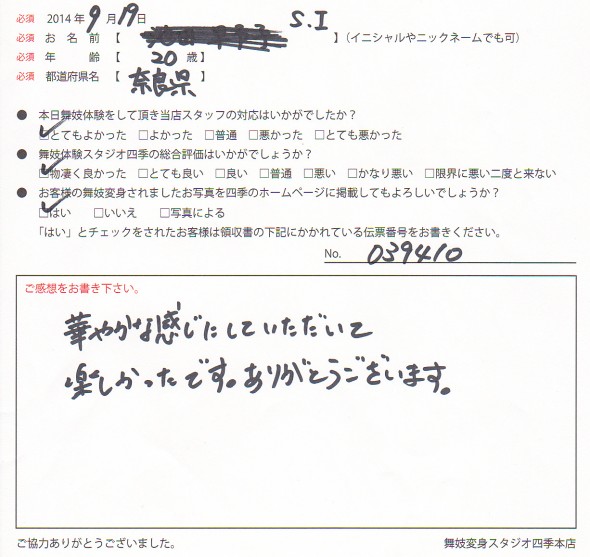 必須 2014年9月19日
必須 お名前【 S.I 】(イニシャルやニックネームでも可)
必須 年齢【 20 歳】
必須 都道府県名【 奈良県
● 本日舞妓体験をして頂き当店スタッフの対応はいかがでしたか？
☑とてもよかった □よかった □普通 □悪かった □とても悪かった
● 舞妓体験スタジオ四季の総合評価はいかがでしょうか？
☑物凄く良かった □とても良い □良い □普通 □悪い □かなり悪い □限界に悪い二度と来ない
● お客様の舞妓変身されましたお写真を四季のホームページに掲載してもよろしいでしょうか？
☑はい □いいえ □写真による
「はい」とチェックをされたお客様は領収書の下記にかかれている伝票番号をお書きください。
No. 039410
ご感想をお書き下さい。
華やかな感じにしていただいて
楽しかったです。ありがとうございます。
ご協力ありがとうございました。 舞妓変身スタジオ四季本店